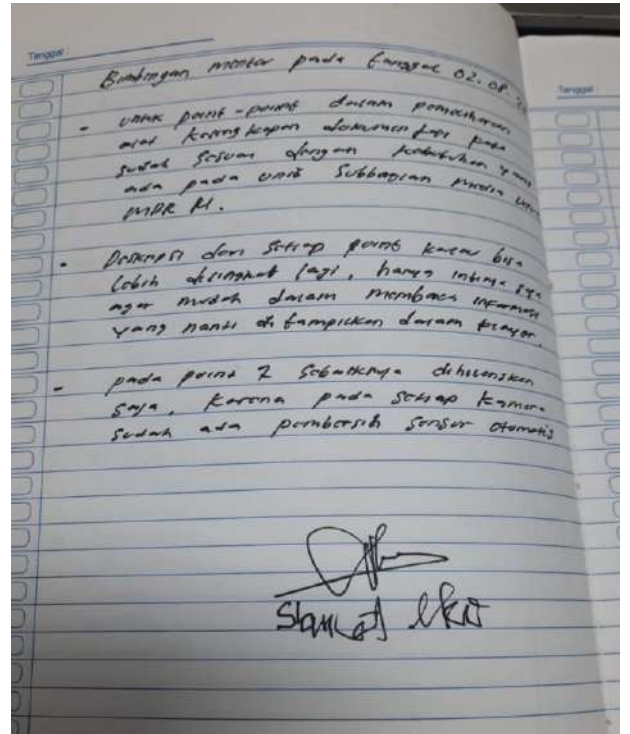 Tanggal :
Tanggal
Bimbingan mentor pada tanggal 02.08.
- untuk point-point dalam pemeliharaan
alat kelengkapan dokumentasi pada
sudah sesuai dengan kebutuhan yang
ada pada unit Subbagian media
MPR RI.
- Deskripsi dari setiap point kalau bisa
lebih disingkat lagi, hanya intinya
agar mudah dalam membaca informasi
yang nanti di tampilkan dalam
- pada point 7 sebaiknya dihilangkan
saja, karena pada setiap kamera
sudah ada pembersih sensor otomatis
Slamet eko